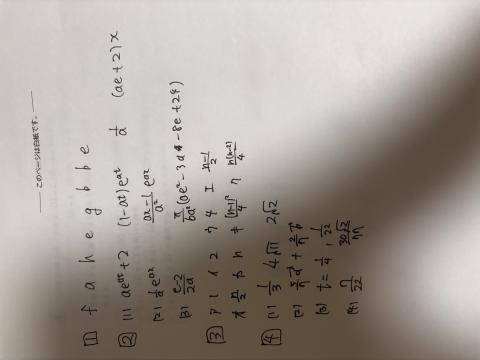 このページは白紙です。
1 f a h e g b b e
2 (1) ae^{at}+2 (1-at)e^{at} 1/a (ae+2)x
(2) 1/a e^{ax} (ax-1)/a² e^{ax}
(3) (e-2)/2a (ae²-3a -8e+24)
3 ア 1 イ 2 ウ 4 エ (n-1)/2
オ n/2 カ n キ (n-1)²/4 ク n(n-2)/4
4 (1) 1/3 4√11 2√2
(2)
(3) t=1/4, 1/22
(4) 7/22